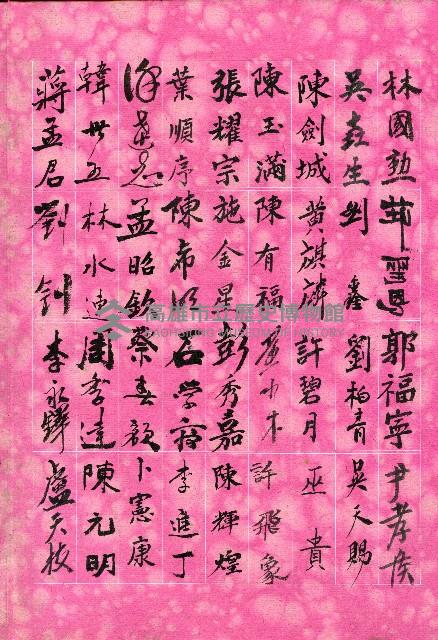 林國勳 郭福寧 尹孝侯
吳垚生 劉鑫 劉柏青 吳天賜
陳劍城 黃麒麟 許碧月 巫貴
陳玉滿 陳有福 許飛象
張耀宗 施金星 彭秀嘉 陳輝煌
葉順序 陳希 石學 李進丁
孟昭欽 蔡春毅 卜憲康
韓世五 林水連 周季達 陳元明
蔣孟君 劉釗 李永鐸 盧天枝
高雄市立歷史博物館
KAOHSIUNG MUSEUM OF HISTORY